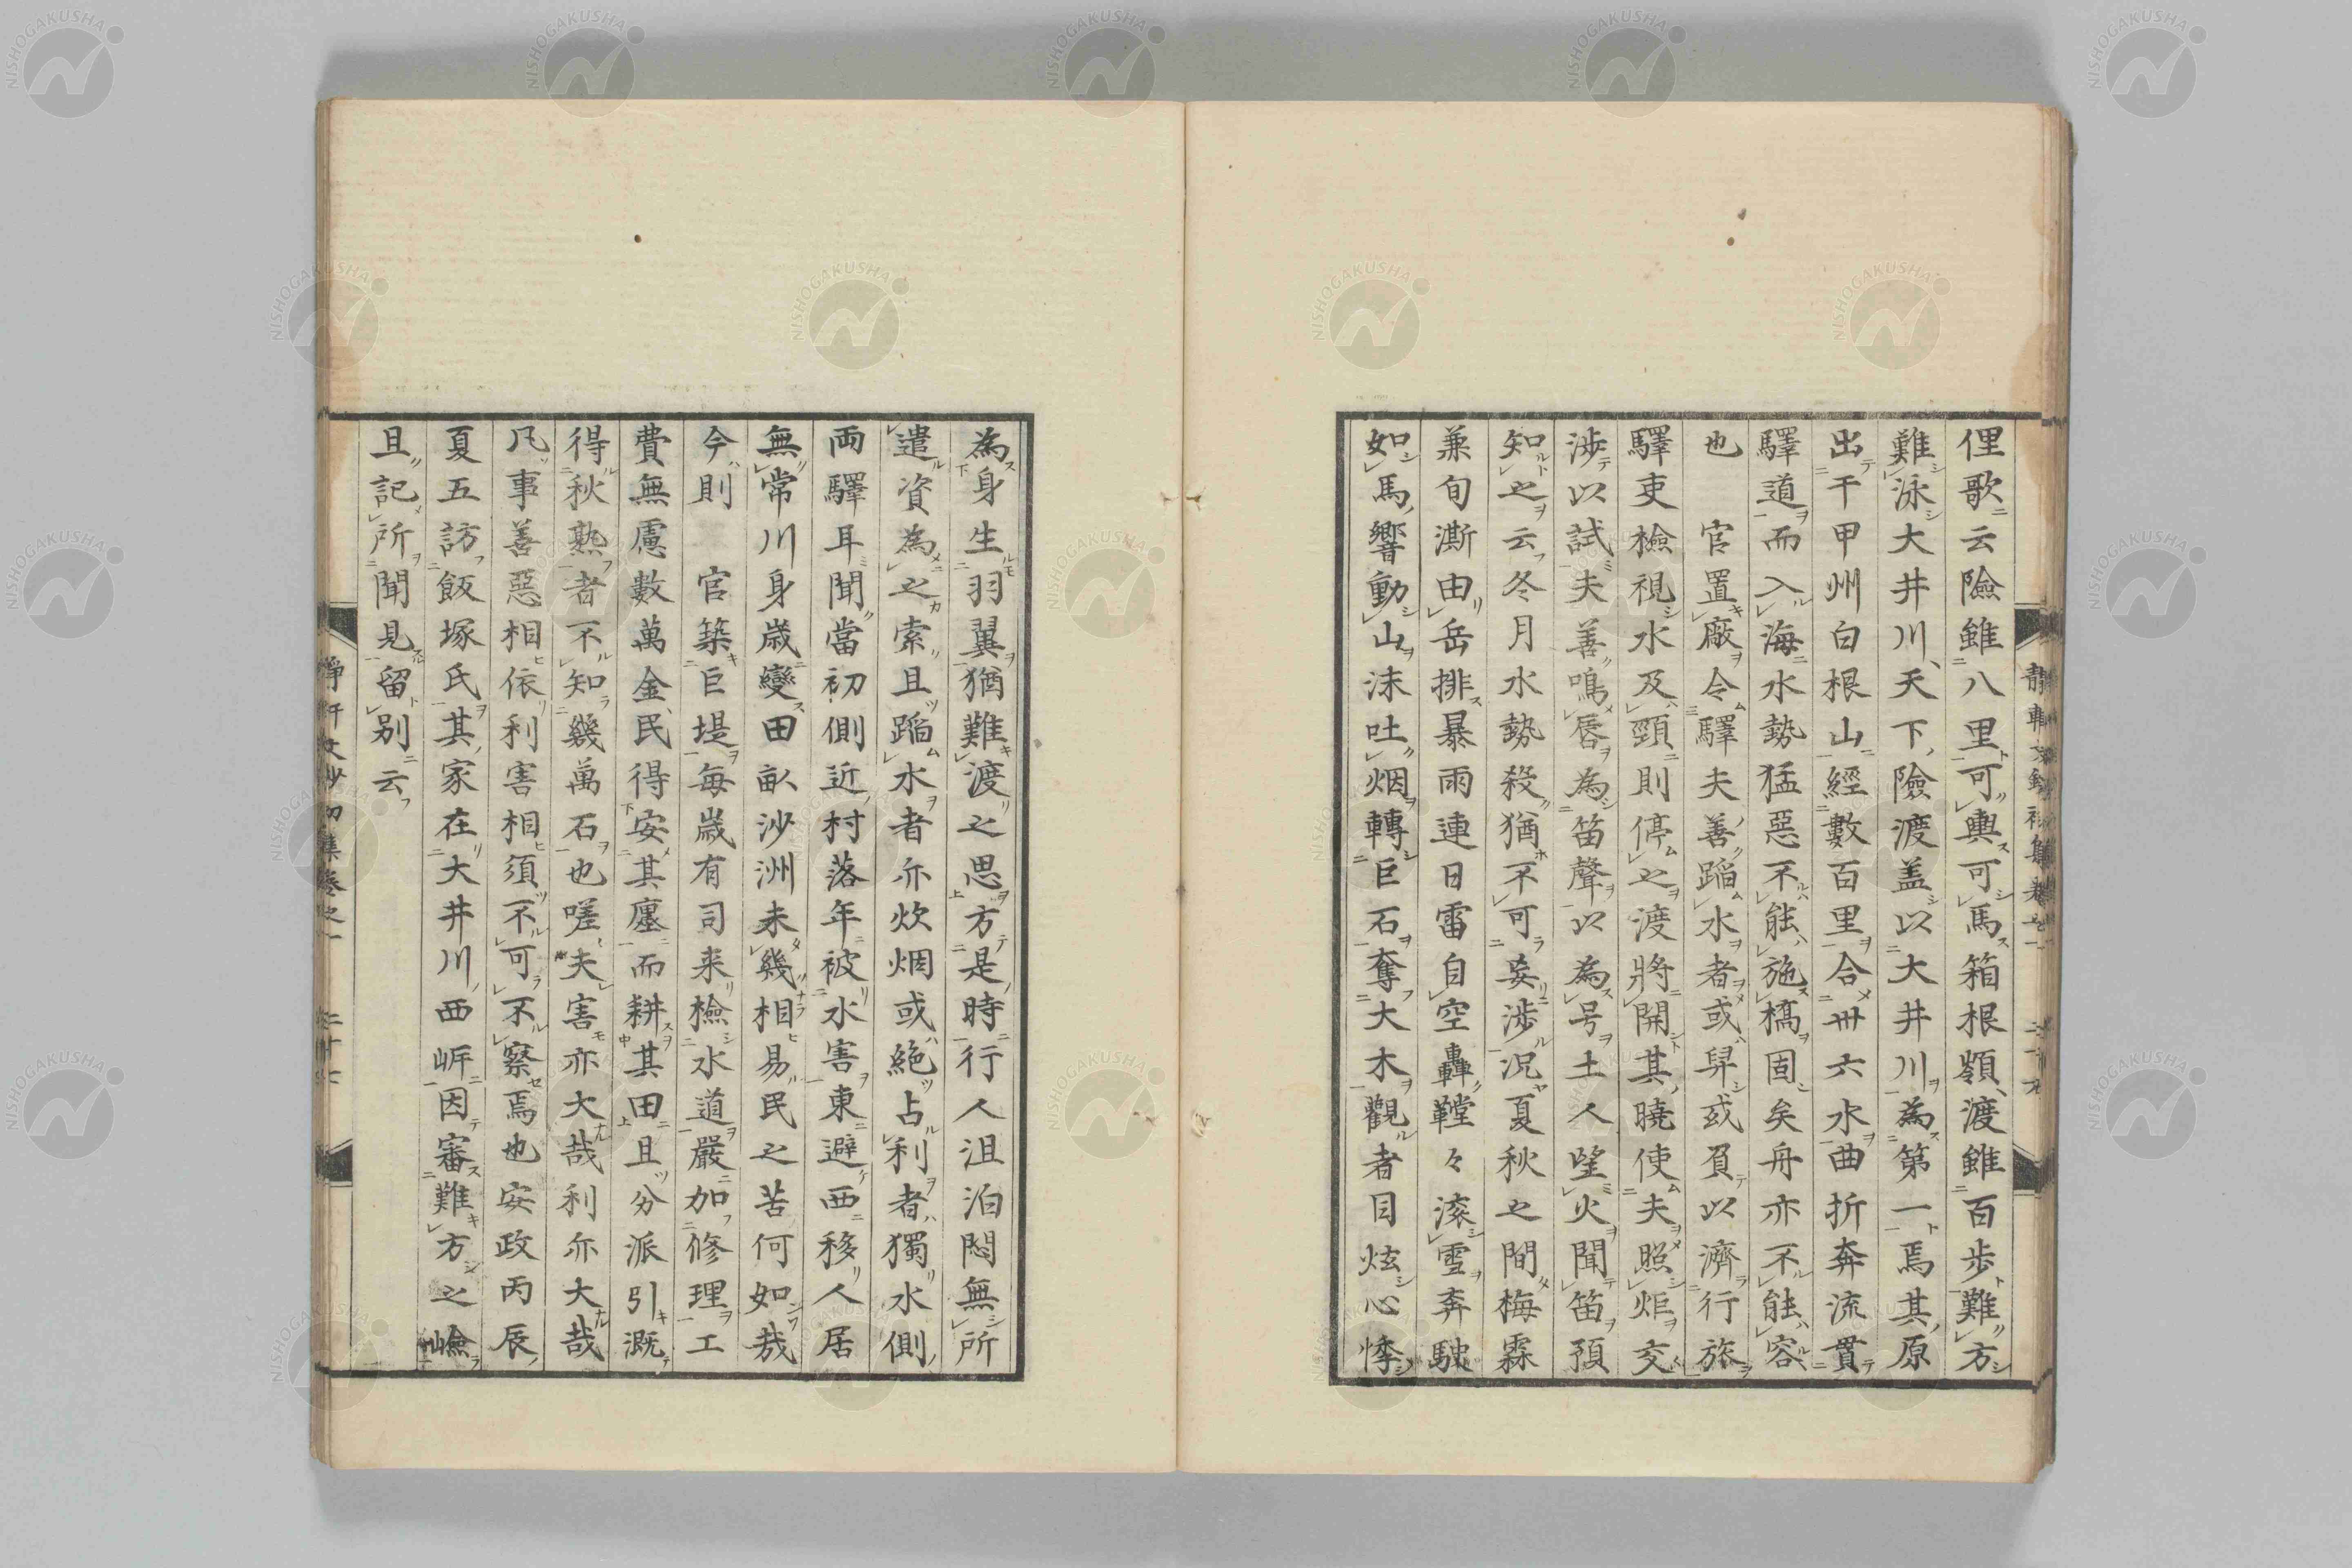 俚歌云險雖八里可輿可馬箱根嶺渡雖百步難方
難泳大井川天下險渡盖以大井川為第一焉其原
出干甲州白根山經數百里合卅六水曲折奔流貫
驛道而入海水勢猛惡不能施橋固矣舟亦不能容
也　官置廠令驛夫善蹈水者或舁或負以濟行旅
驛吏檢視水及頸則停之渡將開其曉使夫照炬交
渉以試夫善鳴唇為笛聲以為号土人望火聞笛預
知之云冬月水勢殺猶不可妄渉况夏秋之間梅霖
兼旬澌由岳排暴雨連日雷自空轟鞺々滚雪奔駛
如馬響動山沫吐烟轉巨石奪大木觀者目炫心悸
為身生羽翼猶難渡之思方是時行人沮泊悶無所
遣資為之索且蹈水者亦炊烟或絶占利者獨水側
両驛耳聞當初側近村落年被水害東避西移人居
無常川身歳變田畝沙洲未幾相易民之苦何如哉
今則　官築巨堤每歳有司来檢水道嚴加修理工
費無慮數萬金民得安其廛而耕其田且分派引溉
得秋熟者不知幾萬石也嗟夫害亦大哉利亦大哉
凡事善惡相依利害相須不可不察焉也安政丙辰
夏五訪飯塚氏其家在大井川西岍因審難方之嶮
且記所聞見留別云
NISHOGAKUSHA